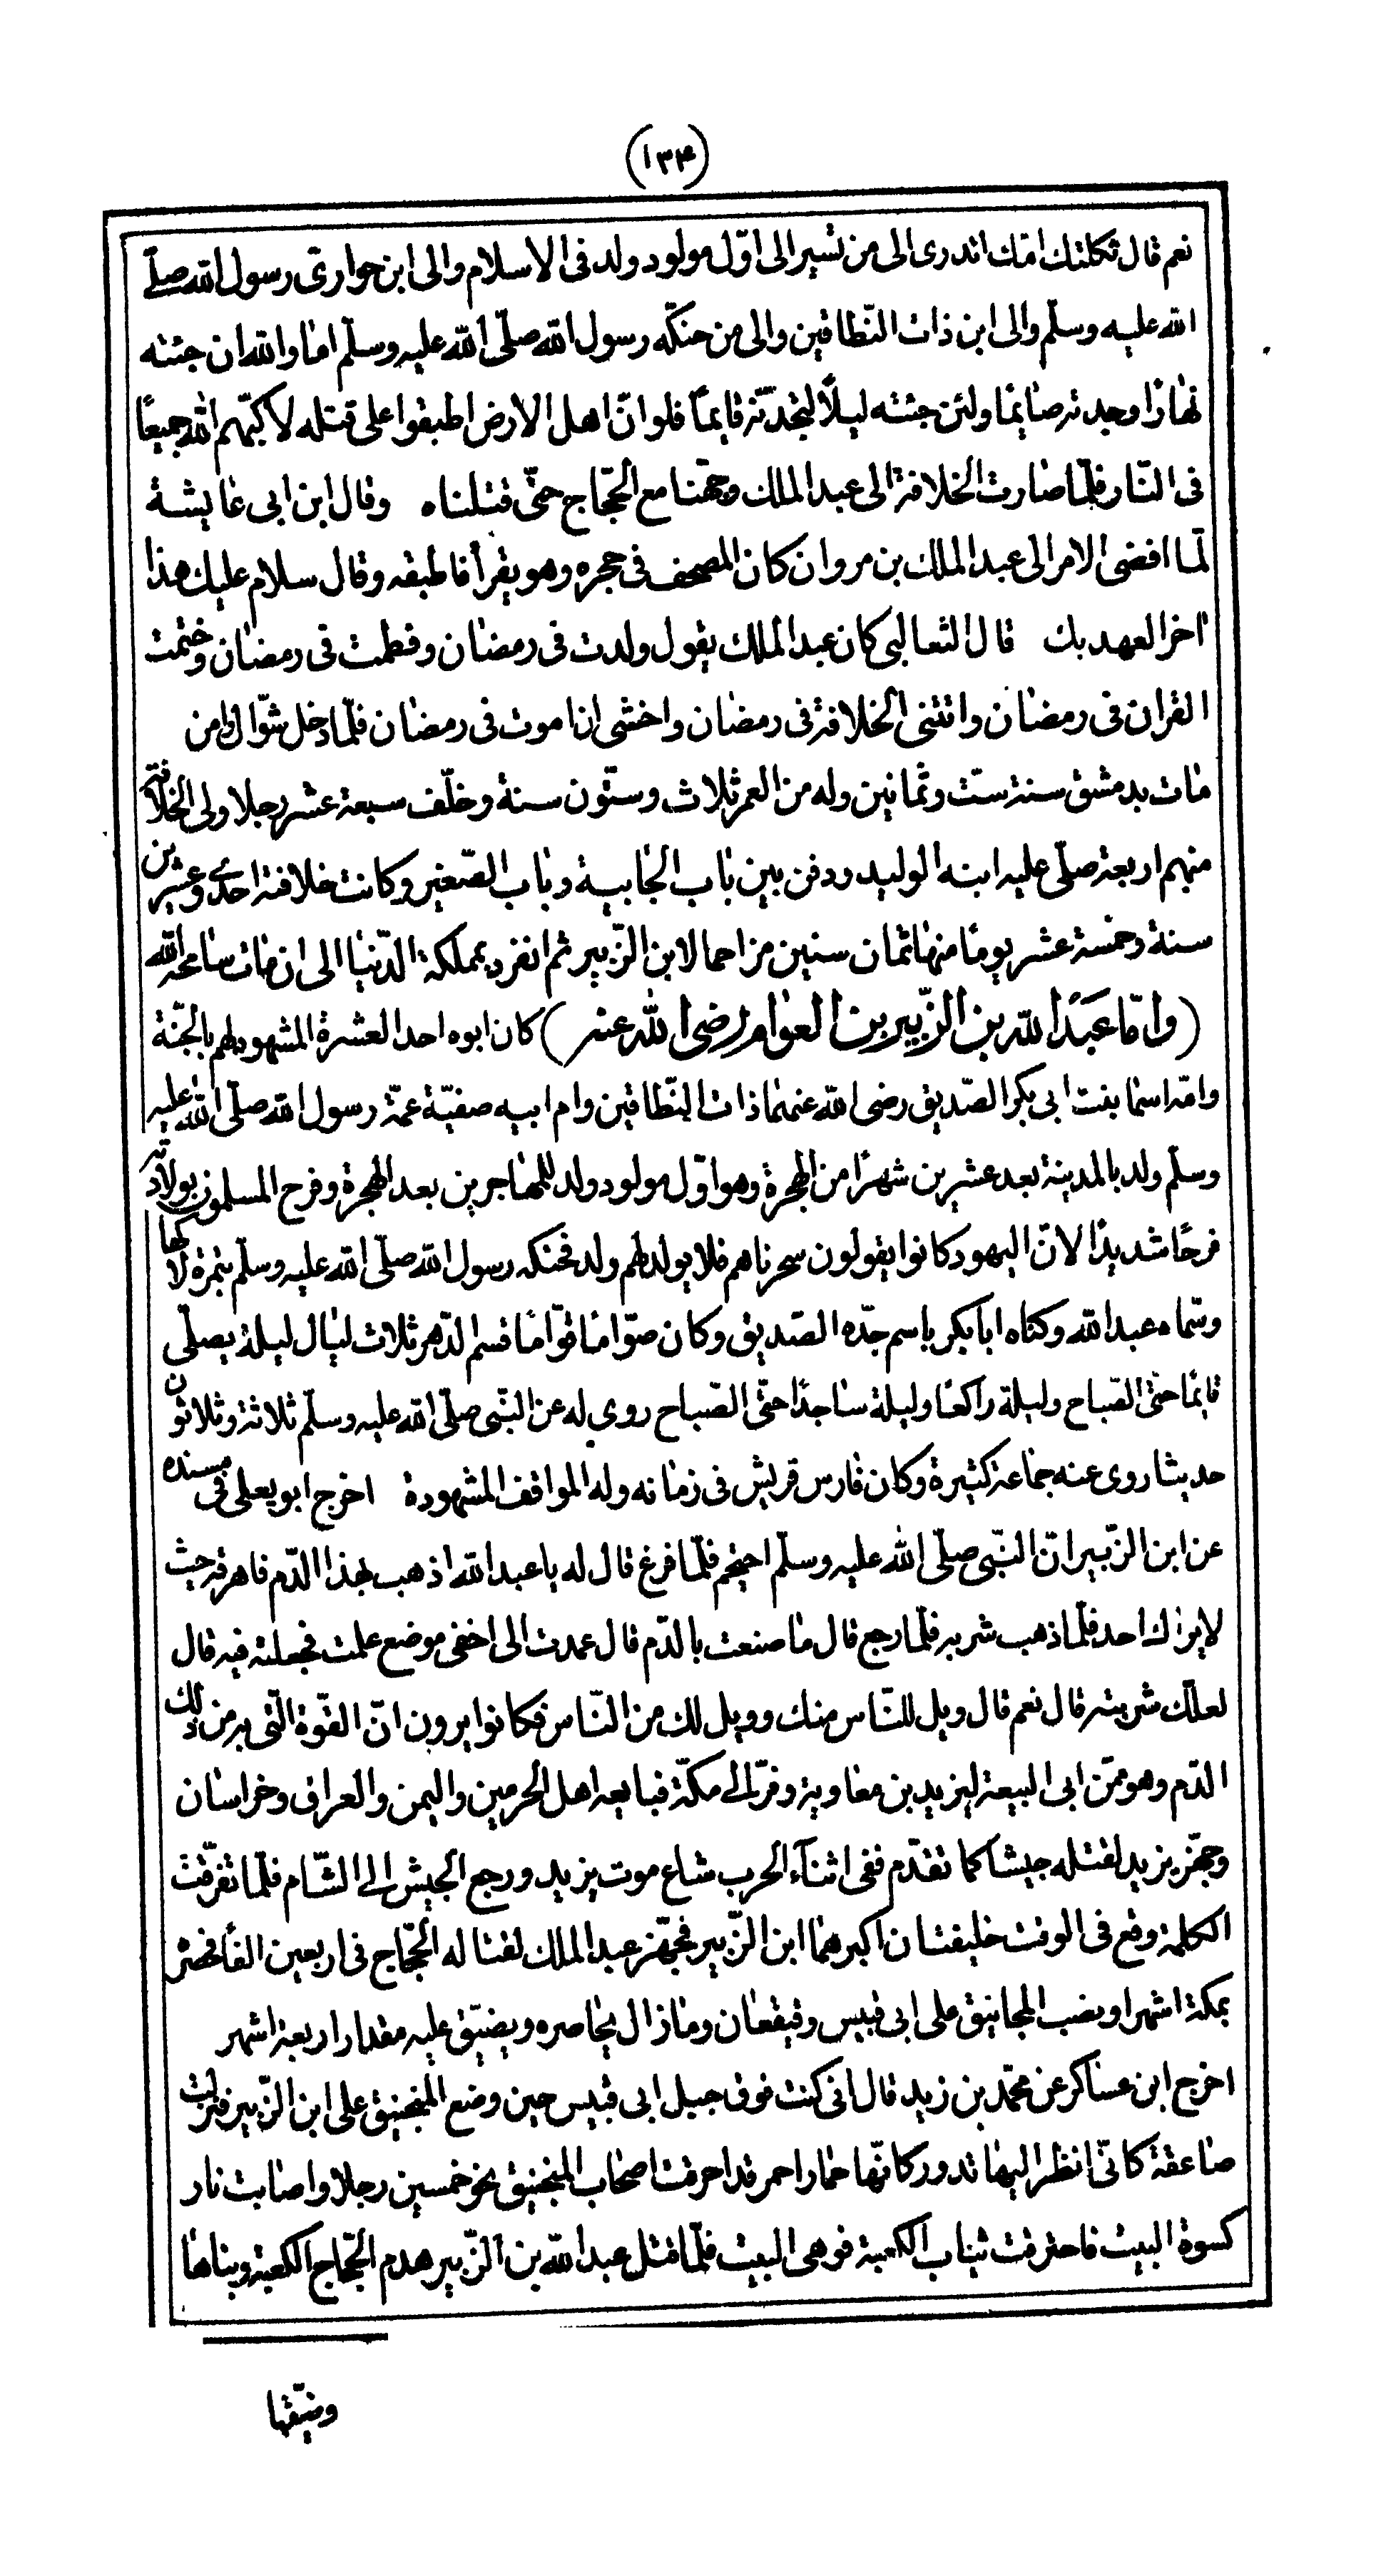 (١٣٤)
نعم قال ثكلتك امّك اتدرى الى من تسير الى اوّل مولود ولد فى الاسلام والى ابن حوارىّ رسول الله صلّى
الله عليه وسلّم والى ابن ذات النّطاقين والى من حنكّه رسول الله صلّى الله عليه وسلّم اما والله ان جئته
نهارًا وجدته صايمًا ولئن جئته ليلًا لتجدّنه قايمًا فلو انّ اهل الارض اطبقوا على قتله لاكبّهم الله جميعًا
فى النّار فلمّا صارت الخلافة الى عبد الملك وجّهنا مع الحجّاج حتّى قتلناه وقال ابن ابى عايشة
لمّا افضى الامر الى عبد الملك بن مروان كان المصحف فى حجره وهو يقرأ فاطبقه وقال سلام عليك هذا
اخر العهد بك قال الثعالبى كان عبد الملك يقول ولدت فى رمضان وفطمت فى رمضان وختمت
القران فى رمضان واتتنى الخلافة فى رمضان واخشى ان اموت فى رمضان فلمّا دخل شوّال وامن
مات بدمشق سنة ستّ وثمانين وله من العمر ثلاث وستّون سنة وخلّف سبعة عشر رجلا ولى الخلافة
منهم اربعة صلّى عليه ابنه الوليد ودفن بين باب الجابية وباب الصّغير وكانت خلافته احدى وعشرين
سنة وخمسة عشر يومًا منها ثمان سنين مزاحما لابن الزّبير ثم انفرد بمملكة الدّنيا الى ان مات سامحه الله
(وامّا عبد الله بن الزّبير بن العوام رضى الله عنه) كان ابوه احد العشرة المشهود لهم بالجنّة
وامّه اسما بنت ابى بكر الصّديق رضى الله عنهما ذات النّطاقين وام ابيه صفيّة عمّة رسول الله صلّى الله عليه
وسلّم ولد بالمدينة بعد عشرين شهرًا من الهجرة وهو اوّل مولود ولد للمهاجرين بعد الهجرة وفرح المسلمون بولادته
فرحًا شديدًا لانّ اليهود كانوا يقولون سحرناهم فلا يولد لهم ولد فحنكه رسول الله صلّى الله عليه وسلّم بتمرة لاكها
وسمّاه عبد الله وكنّاه ابا بكر باسم جدّه الصّديق وكان صوّامًا قوّامًا قسم الدّهر ثلاث ليال ليلة يصلّى
قايمًا حتّى الصّباح وليلة راكعًا وليلة ساجدًا حتّى الصّباح روى له عن النّبى صلّى الله عليه وسلّم ثلاثة وثلاثون
حديثا روى عنه جماعة كثيرة وكان فارس قريش فى زمانه وله المواقف المشهودة اخرج ابو يعلى فى مسنده
عن ابن الزّبير انّ النّبى صلّى الله عليه وسلّم احتجم فلمّا فرغ قال له يا عبد الله اذهب بهذا الدّم فاهرقه حيث
لا يراك احد فلمّا ذهب شربه فلمّا رجع قال ما صنعت بالدّم قال عمدت الى اخفى موضع علمت فجعلته فيه قال
لعلّك شربته قال نعم قال ويل للنّاس منك وويل لك من النّاس فكانوا يرون انّ القوّة الّتى به من ذلك
الدّم وهو ممّن ابى البيعة ليزيد بن معاوية وفرّ الى مكّة فبايعه اهل الحرمين واليمن والعراق وخراسان
وجهّز يزيد لقتله جيشا كما تقدّم ففى اثنآء الحرب شاع موت يزيد ورجع الجيش الى الشّام فلمّا تفرّقت
الكلمة وقع فى الوقت خليفتان اكبرهما ابن الزّبير فجهّز عبد الملك لقتاله الحجّاج فى اربعين الفًا فحضر
بمكة اشهرا ونصب المجانيق على ابى قبيس وقيقعان وما زال يحاصره ويضيّق عليه مقدار اربعة اشهر
اخرج ابن عساكر عن محمّد بن زيد قال انى كنت فوق جبل ابى قبيس حين وضع المنجنيق على ابن الزّبير فنزلت
صاعقة كانّى انظر اليها تدور كانّها حمار احمر قد احرقت اصحاب المنجنيق نحو خمسين رجلا واصابت نار
كسوة البيت فاحترقت ثياب الكعبة فوهى البيت فلمّا قتل عبد الله بن الزّبير هدم الحجّاج الكعبة وبناها
وضيّقها